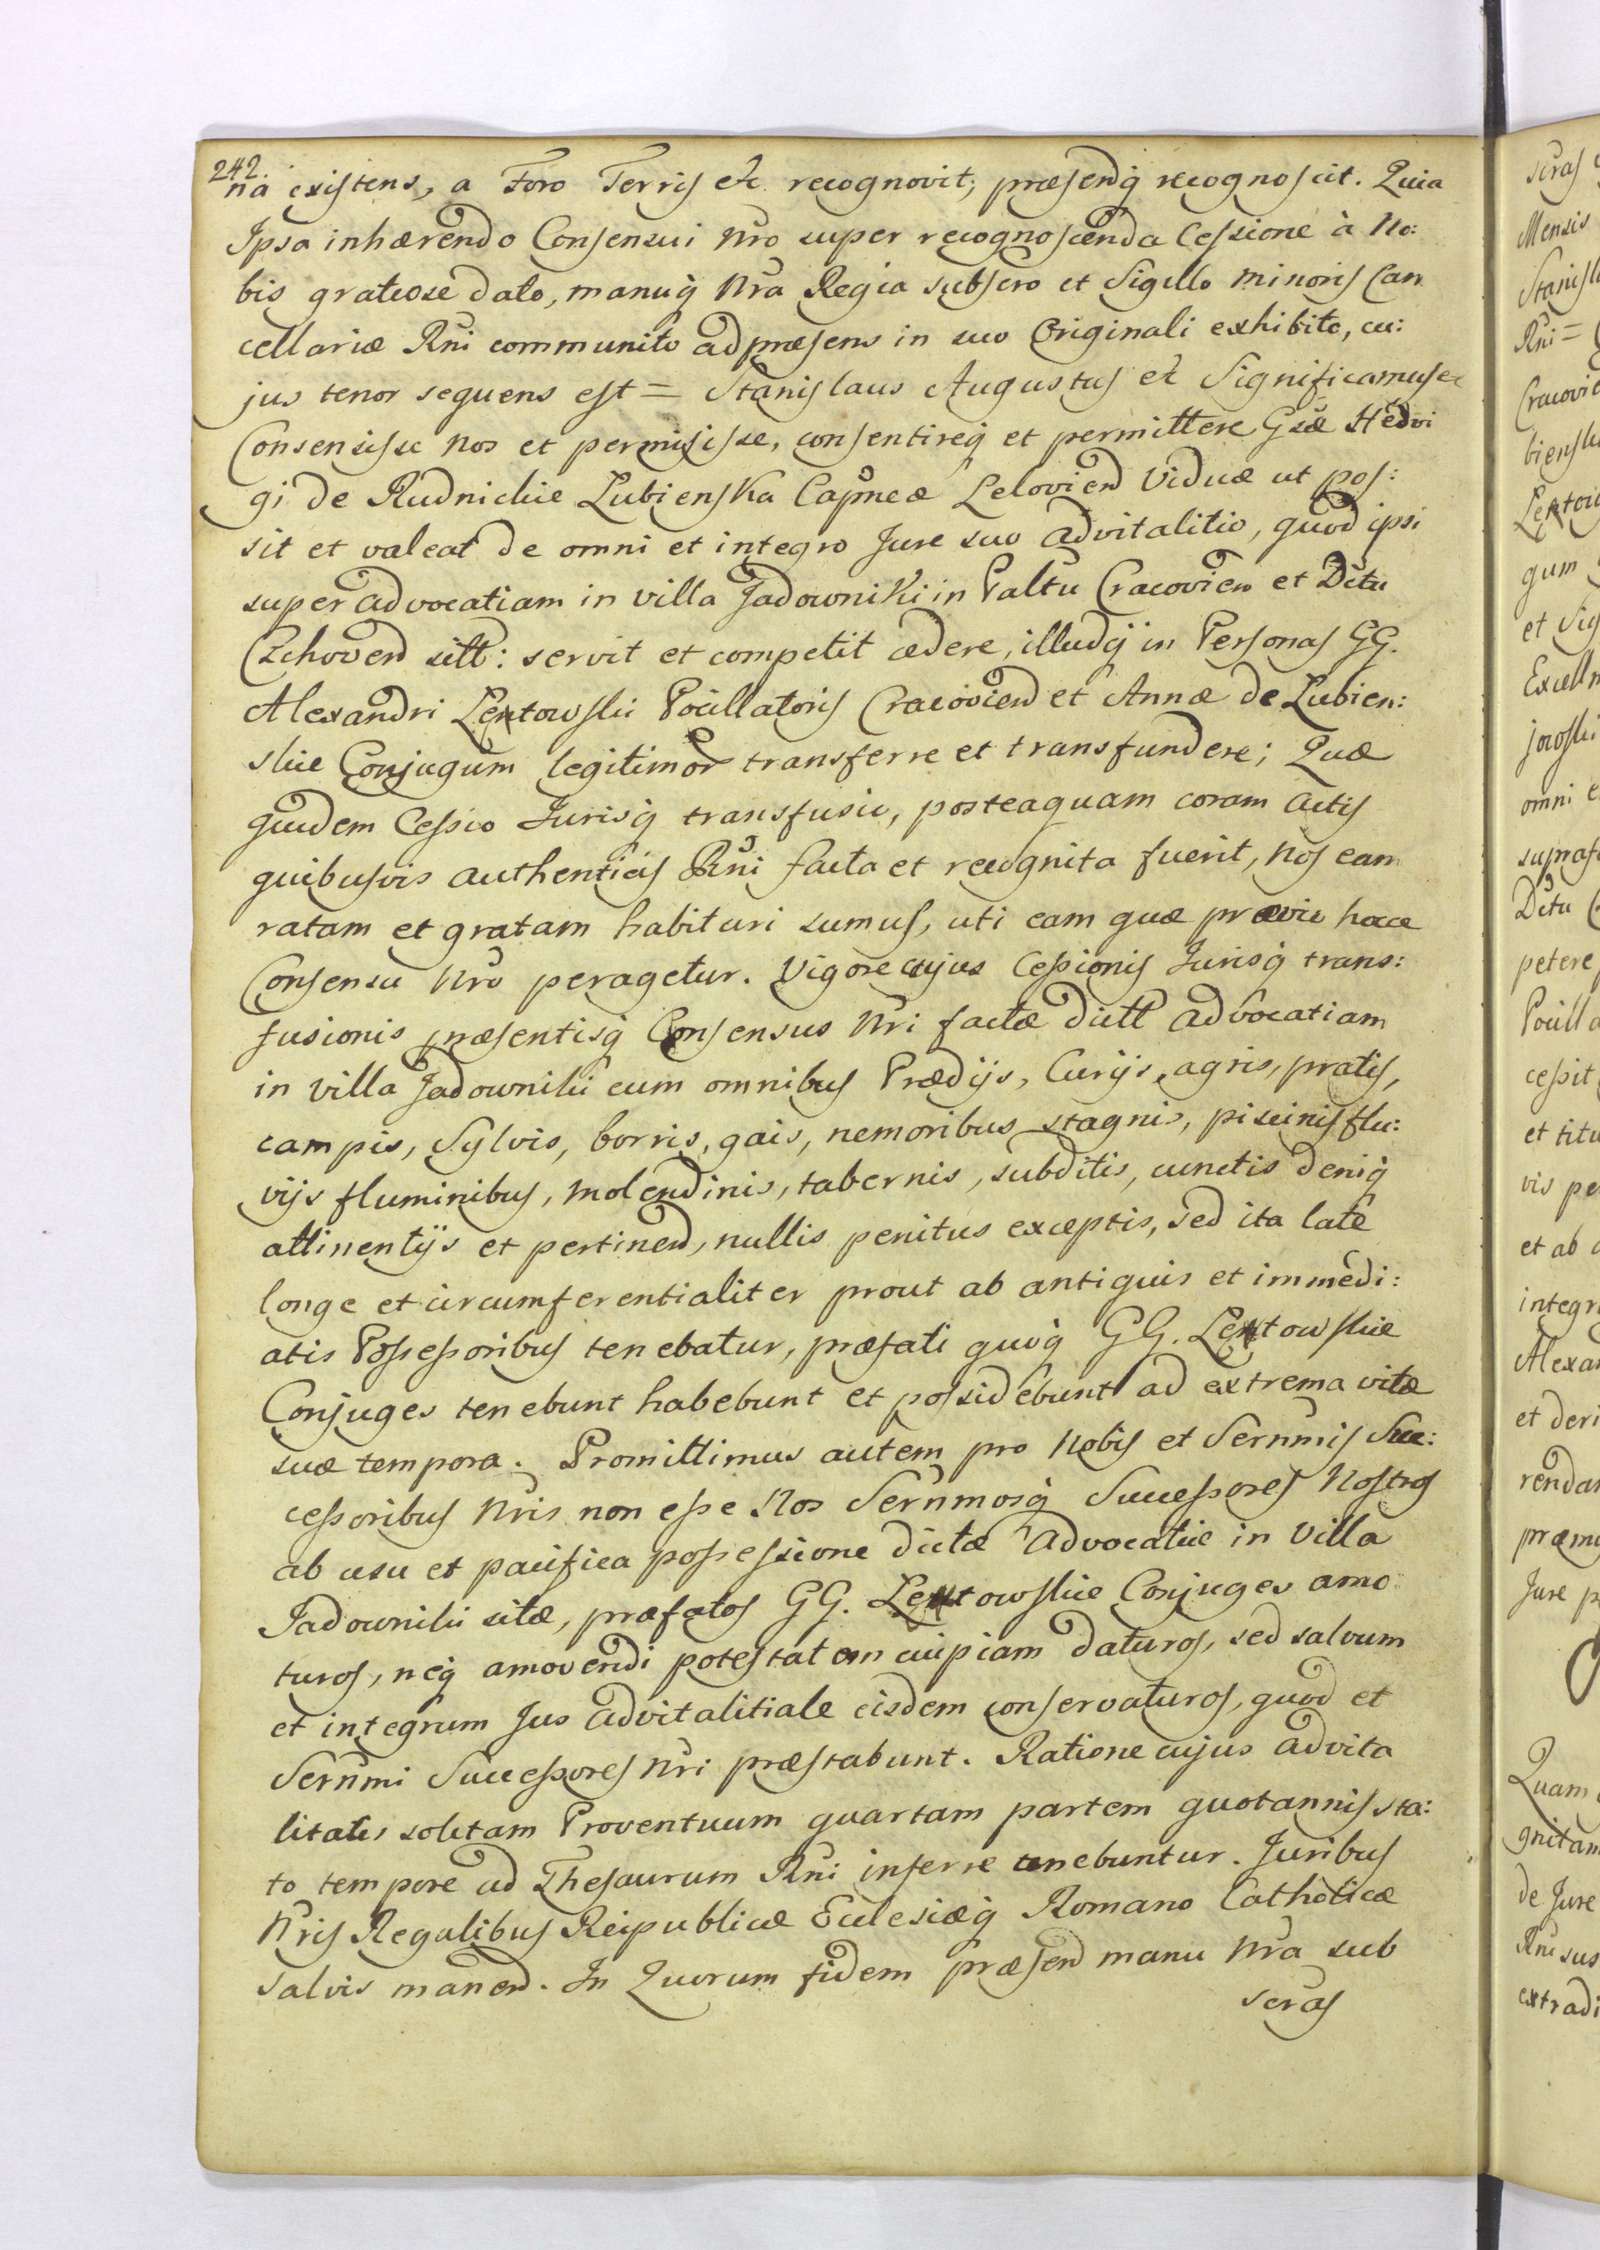 242.
na existens, a Foro Terris etc recognovit, præsendq recognoscit. Quia
Ipsa inhærendo Consensui Nro super recognoscenda Cessione à No:
bis gratiose dato, manuq Nra Regia subscro et Sigillo minoris Can
cellariæ Rni communito ad præsens in suo Originali exhibito, cu:
jus tenor sequens est = Stanislaus Augustus etc Significamus etc
Consensisse Nos et permisisse, consentireq et permittere Gsæ Hedvi
gi de Rudnickie Lubienska Capneæ Leloviend Viduæ ut pos:
sit et valeat de omni et integro Jure suo advitalitio, quod ipsi
super advocatiam in villa Jadowniki in Paltu Cracovien et Dctu
Czchovend sitt: servit et competit cedere, illudq in Personas GG.
Alexandri Lentowski Pocillatoris Cracoviend et Annæ de Lubien:
skie Conjugum legitimor transferre et transfundere; Quæ
quidem Cessio Jurisq transfusio, posteaquam coram Actis
quibusvis authenticis Rni facta et recognita fuerit, Nos eam
ratam et gratam habituri sumus, uti eam quæ prævio hocce
Consensu Nro peragetur. Vigore cujus Cessionis Jurisq trans:
fusionis præsentisq Consensus Nri factæ dictt advocatiam
in villa Jadowniki cum omnibus Prædijs, Curijs, agris, pratis,
campis, Sylvis, borris, gais, nemoribus stagnis, piscinis flu:
vijs fluminibus, molendinis, tabernis, subditis, cunctis deniq
attinentijs et pertinend, nullis penitus exceptis, sed ita late
longe et circumferentialiter prout ab antiquis et immedi:
atis Possessoribus tenebatur, præfati quoq GG. Lentowskie
Conjuges tenebunt habebunt et possidebunt ad extrema vitæ
suæ tempora. Promittimus autem pro Nobis et Sernmis Suc:
cessoribus Nris non esse Nos Sernmosq Successores Nostros
ab usu et pacifica possessione dictæ Advocatiæ in Villa
Jadowniki sitæ, præfatos GG. Lentowskie Conjuges amo
turos, neq amovendi potestatem cuipiam daturos, sed salvum
et integrum Jus advitalitiale eisdem conservaturos, quod et
Sernmi Successores Nri præstabunt. Ratione cujus advita
litatis solitam Proventuum quartam partem quotannis sta:
to tempore ad Thesaurum Rni inferre tenebuntur. Juribus
Nris Regalibus Reipublicæ Eclesiæq Romano Catholicæ
salvis manend. In Quorum fidem præsend manu Nra sub
scras